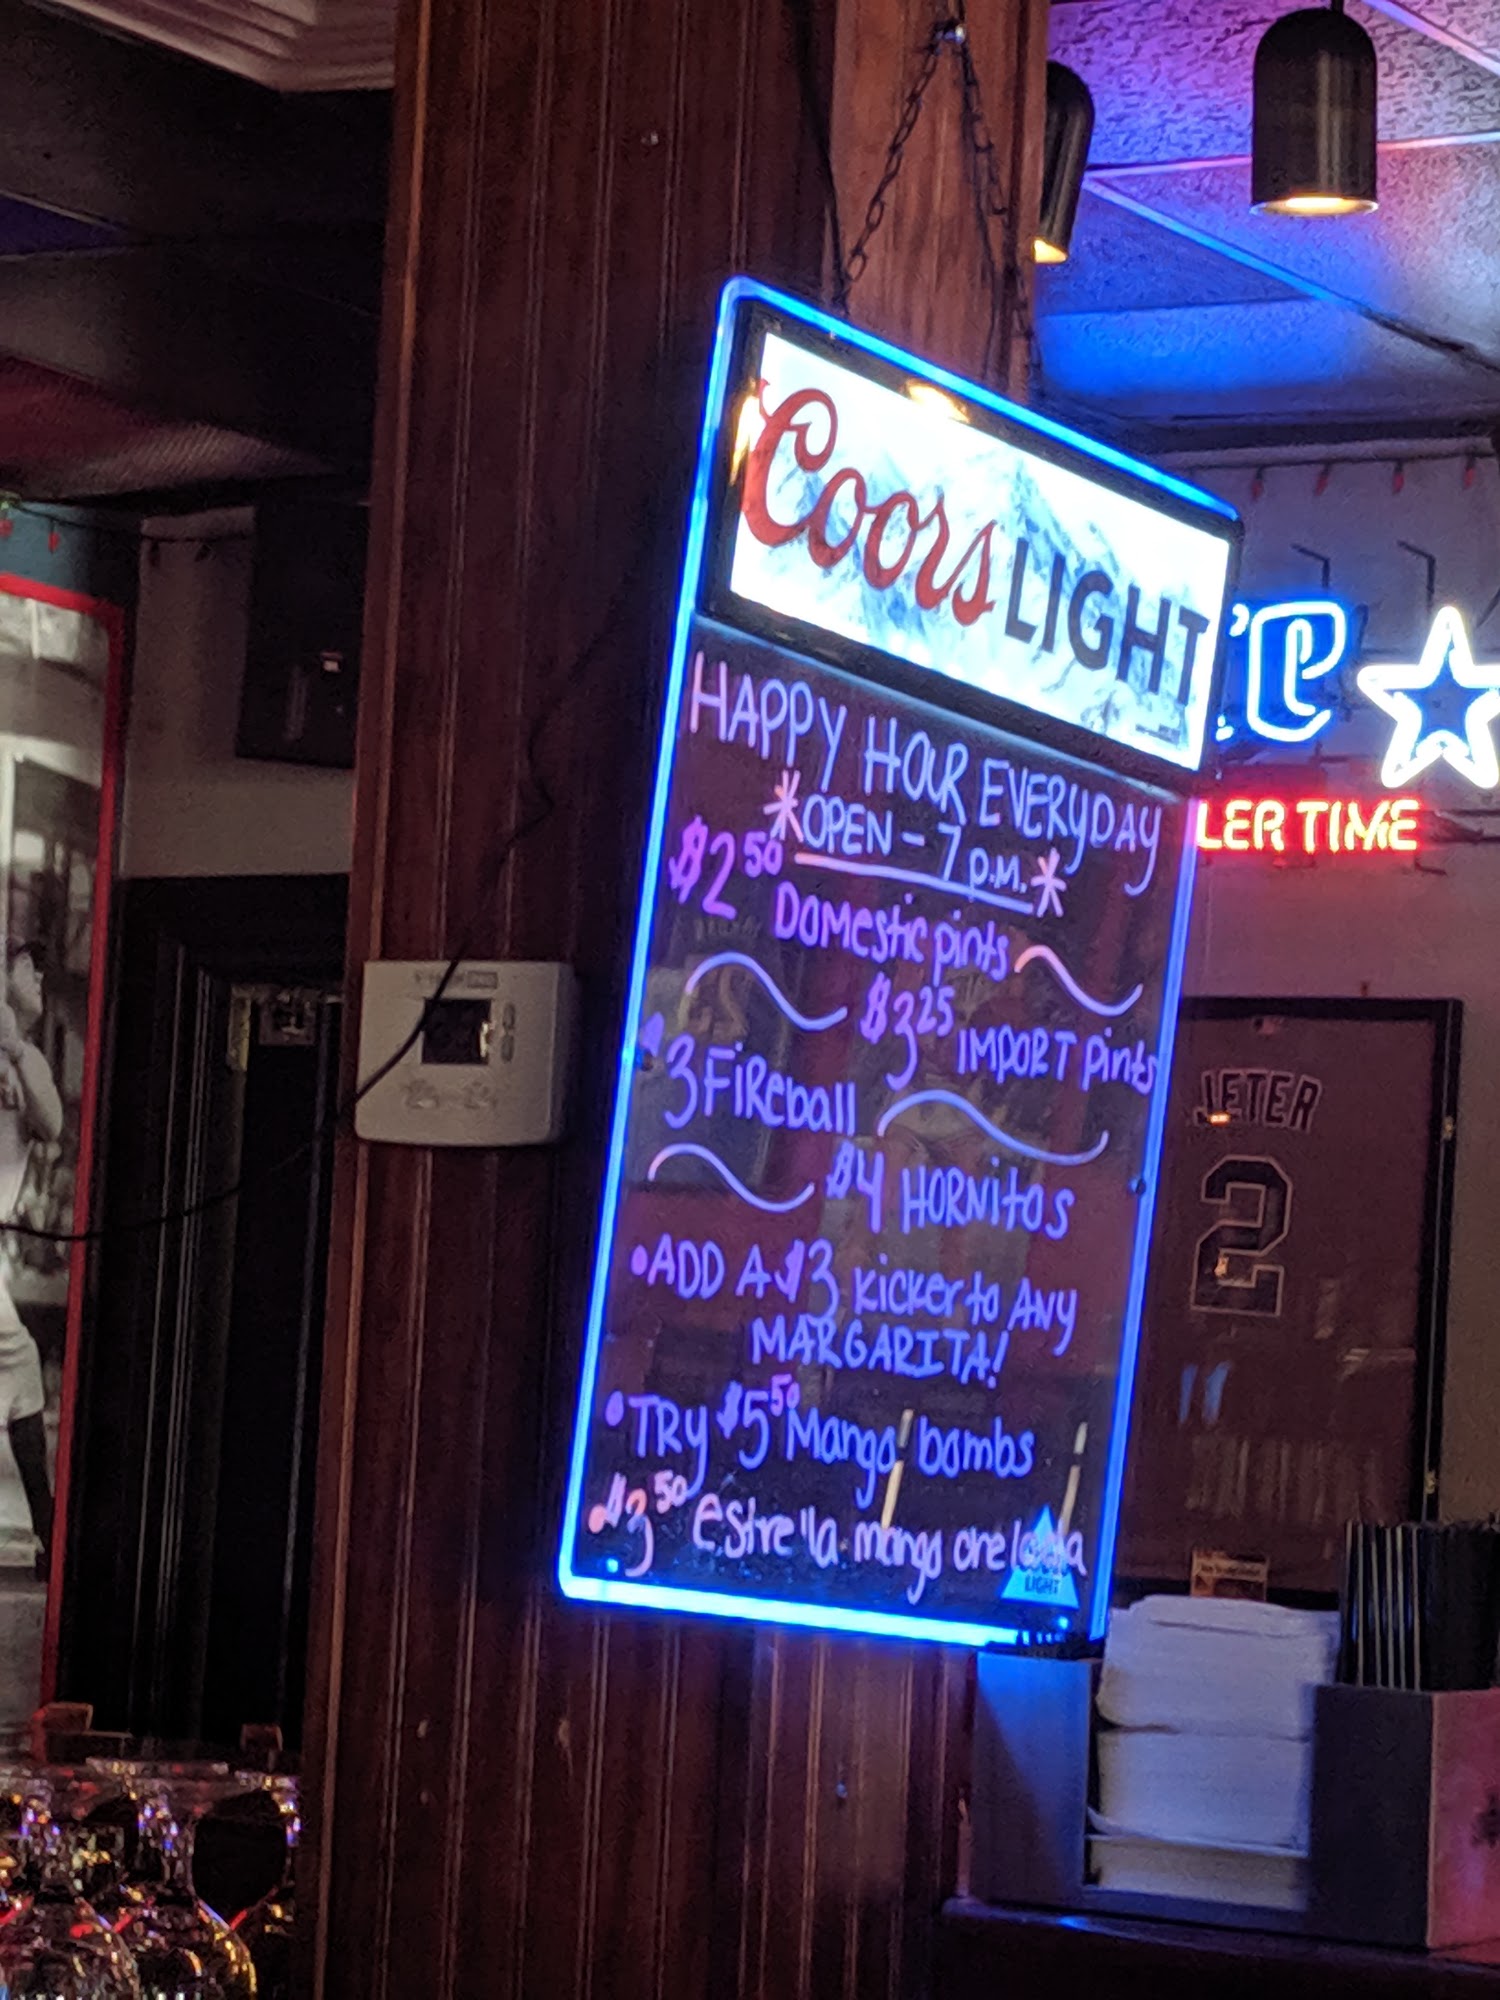 Coors LIGHT
HAPPY HOUR EVERYDAY
*OPEN - 7 p.m.*
$2 50 Domestic pints
$3 25 IMPORT pints
$3 FiReball
$4 HORNitos
•ADD A $3 kicker to ANY
MARGARITA!
•TRy $5 50 Mango bombs
$3 50 estrella mango
LIGHT
LER TIME
JETER
2